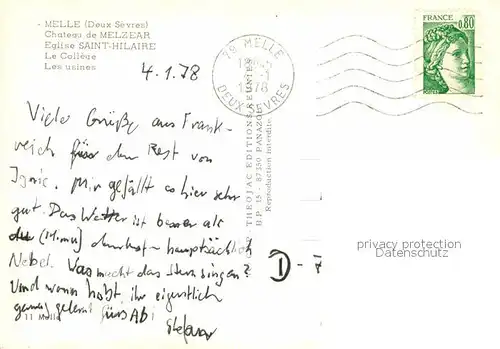 MELLE (Deux Sèvres)
Chateau de MELZEAR
Eglise SAINT-HILAIRE
Le Collège
Les usines
4.1.78
79 MELLE
1978
DEUX SEVRES
FRANCE
0,80
Viele Grüße aus Frank-
reich für den Rest von
Mir gefällt es hier sehr
gut. Das Wetter ist besser als
hauptsächlich
Nebel. Was macht das Sternsingen?
Und wann habt ihr eigentlich
genug gelernt fürs Abi
Stefan
11 Melle
THEOJAC EDITIONS REUNIES
B.P. 15 - 87350 PANAZOL
Reproduction interdite
D - 7
privacy protection
Datenschutz